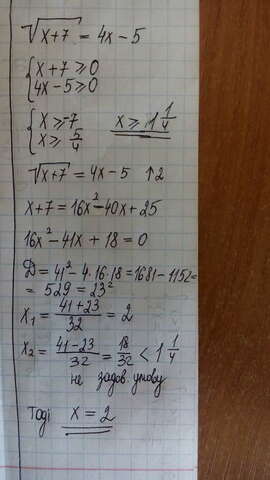 √x+7 = 4x-5
{ x+7 ≥ 0
4x-5 ≥ 0
{ x ≥ -7
x ≥ 5/4    x ≥ 1 1/4
√x+7 = 4x-5 ↑2
x+7 = 16x²-40x+25
16x²-41x+18=0
D=41²-4·16·18=1681-1152=
= 529 = 23²
x₁ = 41+23/32 = 2
x₂ = 41-23/32 = 18/32 < 1 1/4
не задов. умову
Тоді x = 2